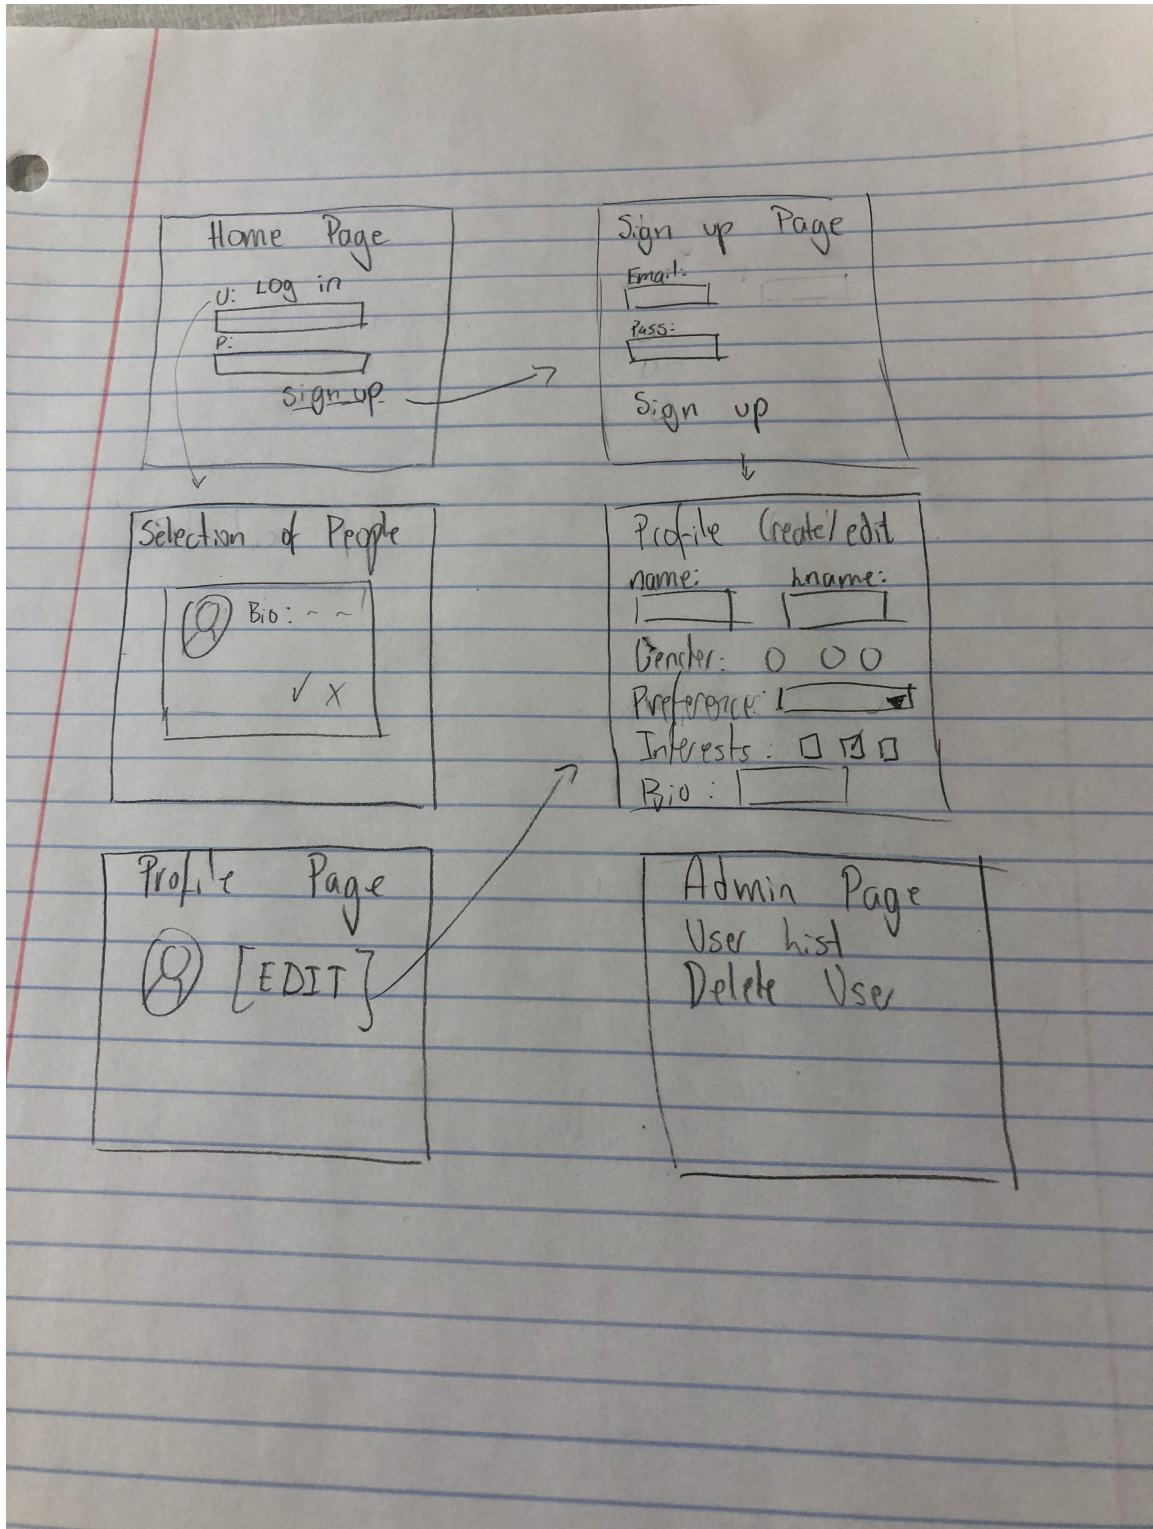 Home Page
Log in
U:
P:
sign up
Sign up Page
Email:
Pass:
Sign up
Selection of People
Bio: ~ ~
✓ X
Profile Create/edit
name: Lname:
Gender:
Preference:
Interests:
Bio:
Profile Page
[EDIT]
Admin Page
User List
Delete User